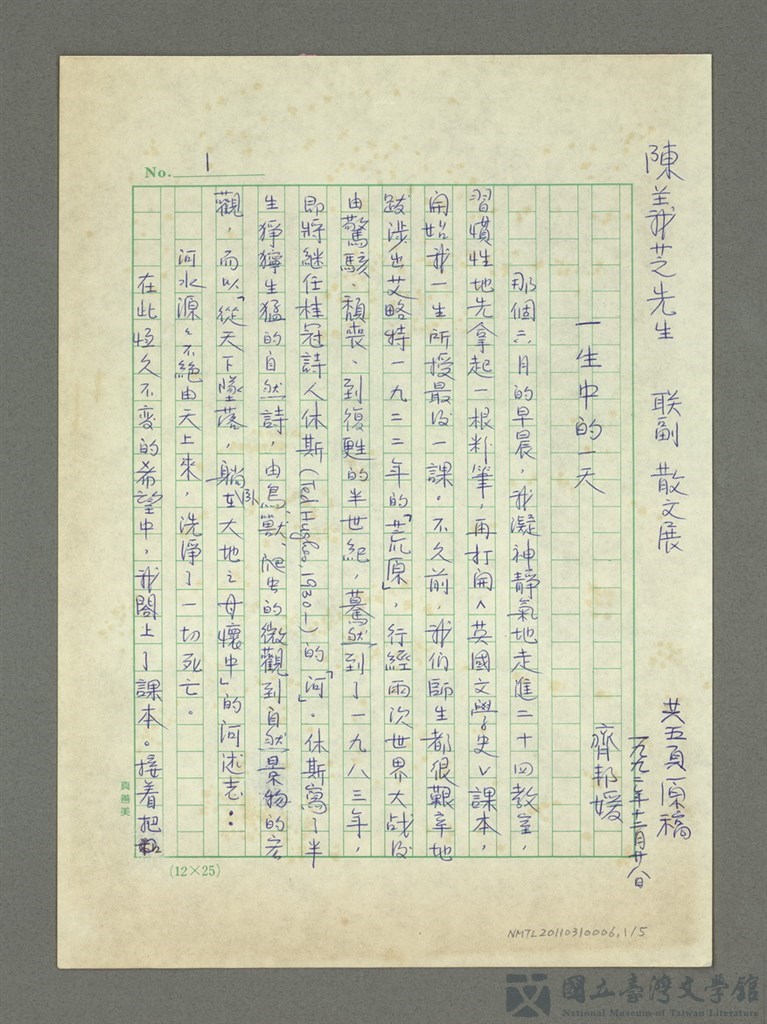 陳義芝先生 联副 散文展
共五頁原稿
一九九二年十二月廿八日
齊邦媛
一生中的一天
那個六月的早晨，我凝神靜氣地走進二十四教室，
習慣性地先拿起一根粉筆，再打開＜英國文學史＞課本，
開始我一生所授最後一課。不久前，我们師生都很艱辛地
跋涉出艾略特一九二二年的「荒原」，行經兩次世界大战後
由驚駭、頹喪、到復甦的半世紀，驀然到了一九八三年，
即將繼任桂冠詩人休斯(Ted Hughes, 1930—)的「河」。休斯寫了半
生猙獰生猛的自然詩，由鳥、獸、爬虫的微觀到自然景物的宏
觀，而以「從天下墜落，躺臥在大地之母懷中」的河述志：
河水源々不絕由天上來，洗淨了一切死亡。
在此恆久不變的希望中，我闔上了課本。接着把
No. 1
(12×25)
真善美
NMTL20110310006,1/5
國立臺灣文學館
National Museum of Taiwan Literature